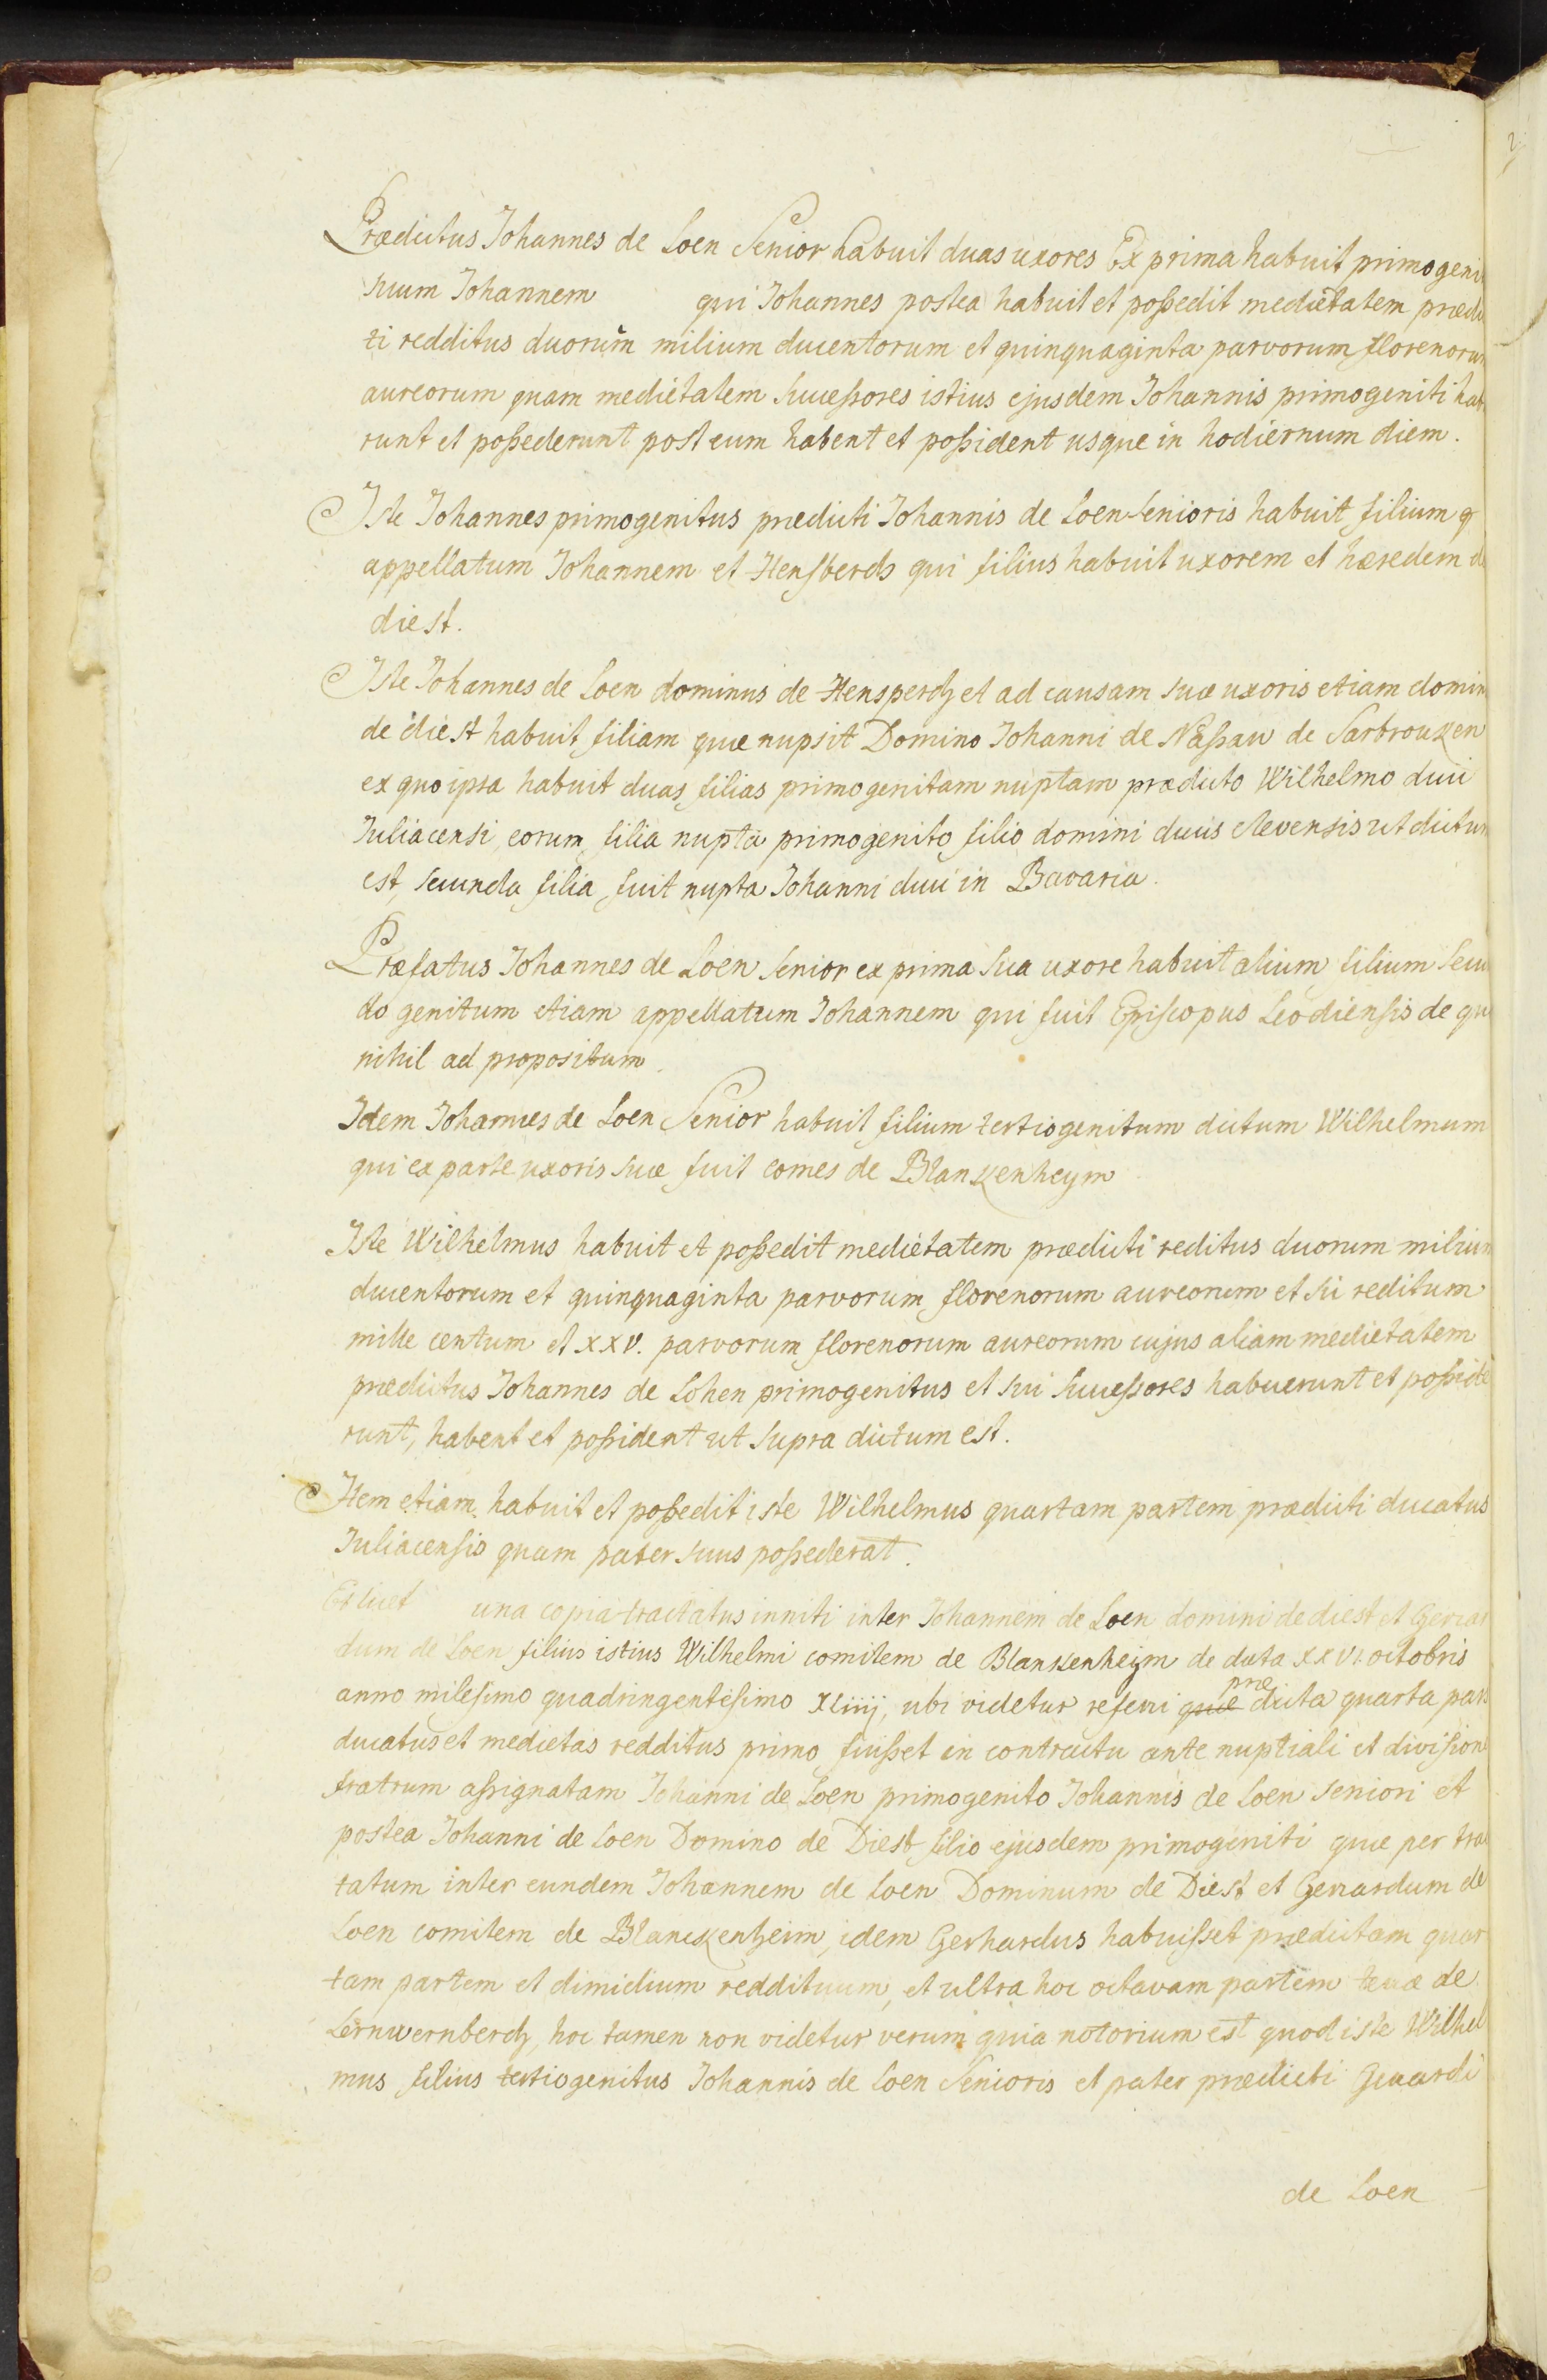 Prædictus Johannes de Loen Senior habuit duas uxores Ex prima habuit primogeni
suum Johannem qui Johannes postea habuit et poßedit medietatem prædic
ti redditus duorum milium ducentorum et quinquaginta parvorum florenorum
aureorum quam medietatem Succeßores istius ejusdem Johannis primogeniti hab
runt et poßederunt post eum habent et poßident usque in hodiernum diem.
Iste Johannes primogenitus prædicti Johannis de Loen Senioris habuit filium q
appellatum Johannem et Hensberch qui filius habuit uxorem et hæredem de
diest.
Iste Johannes de Loen dominus de Hensperch et ad causam suæ uxoris etiam domin
de diest habuit filiam quæ nupsit Domino Johanni de Naßau de Sarbrouken
ex quo ipsa habuit duas filias primogenitam nuptam prædicto Wilhelmo duci
Juliacensi, eorum filia nupta primogenito filio domini ducis Clevensis ut dictum
est, secunda filia fuit nupta Johanni duci in Bavaria.
Præfatus Johannes de Loen Senior ex prima sua uxore habuit alium filium Secun
do genitum etiam appellatum Johannem qui fuit Episcopus Leodiensis de quo
nihil ad propositum.
Idem Johannes de Loen Senior habuit filium tertiogenitum dictum Wilhelmum
qui ex parte uxoris suæ fuit comes de Blankenheym
Iste Wilhelmus habuit et poßedit medietatem prædicti reditus duorum milium
ducentorum et quinquaginta parvorum florenorum aureorum et sic reditum
mille centum et XXV. parvorum florenorum aureorum cujus aliam medietatem
prædictus Johannes de Lohen primogenitus et sui Succeßores habuerunt et poßide
runt, habent et poßident ut supra dictum est.
Item etiam habuit et poßedit iste Wilhelmus quartam partem prædicti ducatus
Juliacensis quam pater suus poßederat.
Et licet una copia tractatus inniti inter Johannem de Loen domini de diest et Gerar
dum de Loen filius istius Wilhelmi comitem de Blankenheijm de data XXVI. octobris
anno milesimo quadringentesimo XLiiij, ubi videtur referri quæ præ dicta quarta pars
ducatus et medietas redditus primo fuißet in contractu ante nuptiali et division
fratrum aßignatam Johanni de Loen primogenito Johannis de Loen seniori et
postea Johanni de Loen Domino de Diest filio ejusdem primogeniti quæ per trac
tatum inter eundem Johannem de Loen Dominum de Diest et Gerrardum de
Loen comitem de Blanckenheim, idem Gerhardus habuißet prædictam quar
tam partem et dimidium reddituum, et ultra hoc octavam partem terræ de
Lernwernberch, hoc tamen non videtur verum quia notorium est quod iste Wilhel
mus filius tertiogenitus Johannis de Loen Senioris et pater prædicti Gerardi
de Loen